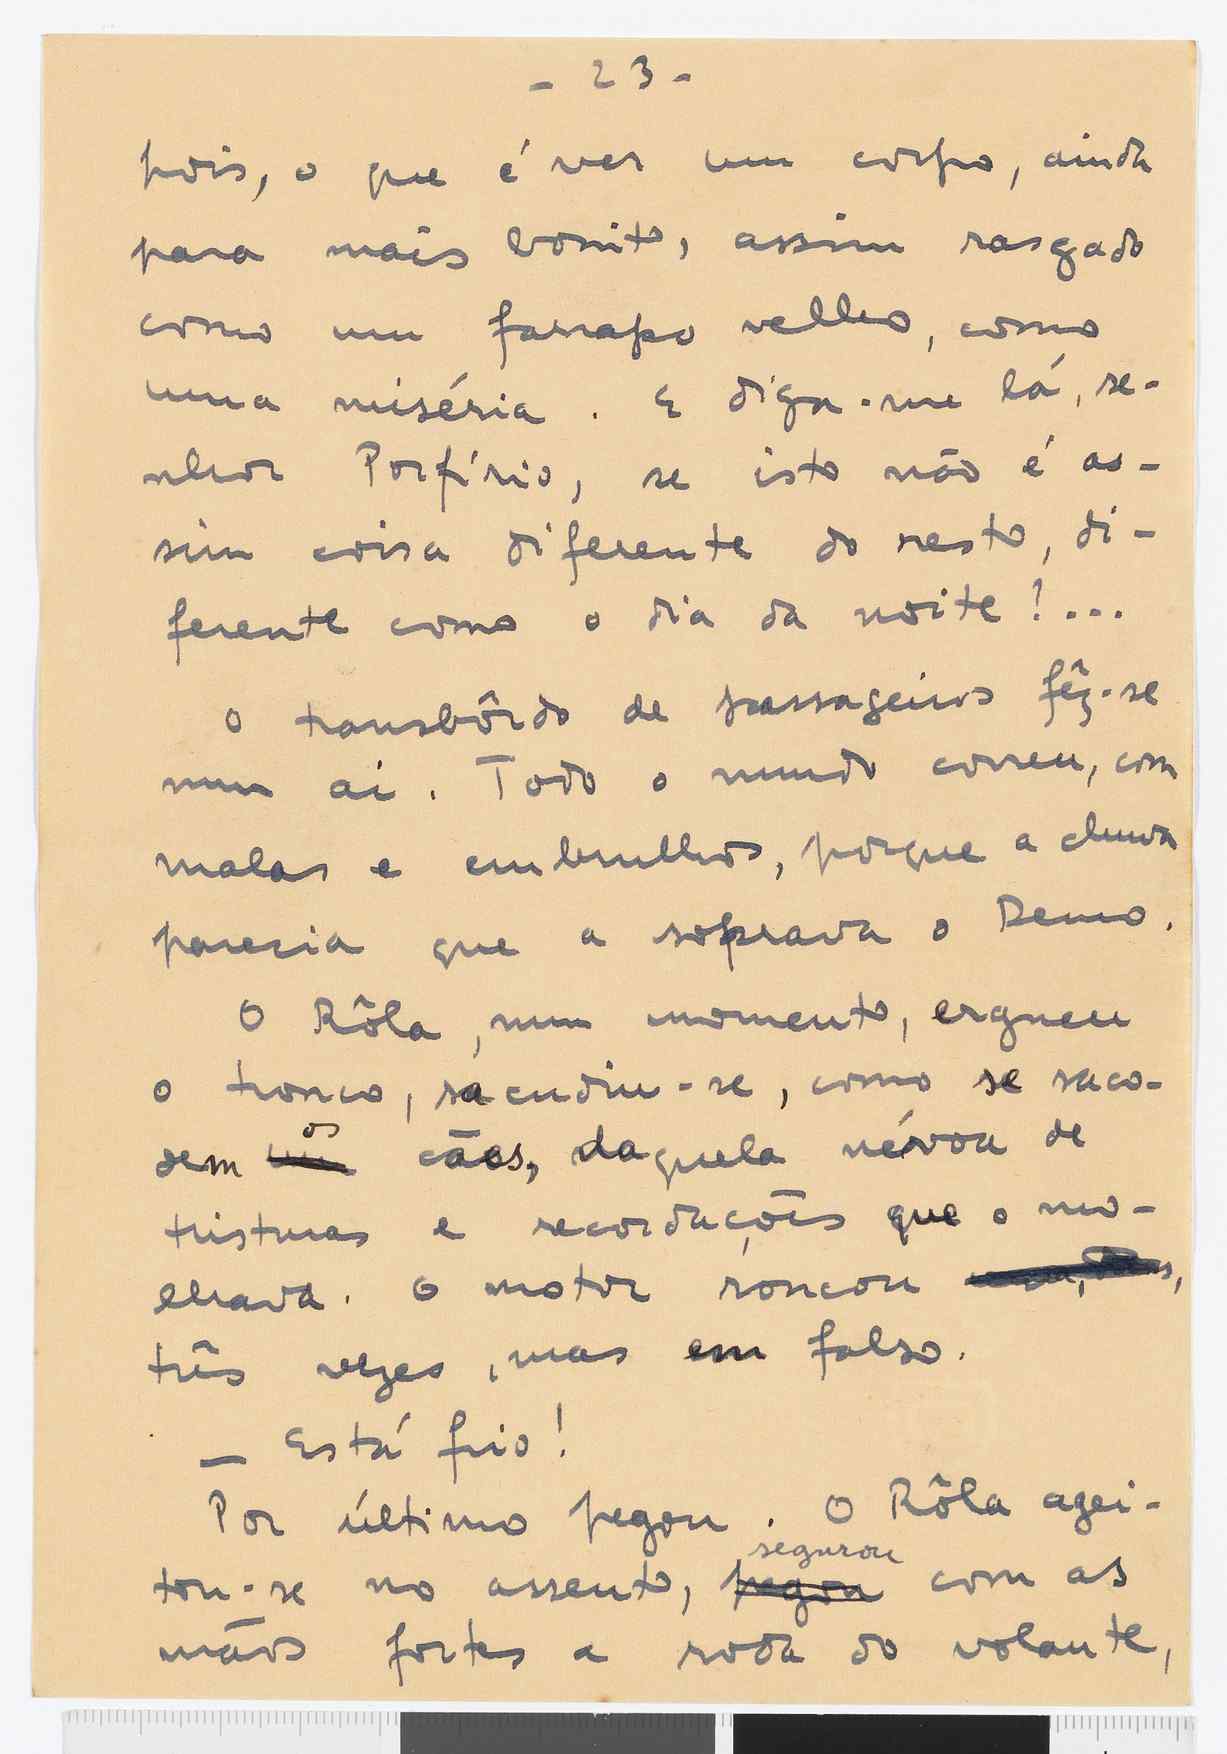 - 23 -
pois, o que é ver um corpo, ainda
para mais bonito, assim rasgado
como um farrapo velho, como
uma miséria. E diga-me lá, se-
nhor Porfírio, se isto não é as-
sim coisa diferente do resto, di-
ferente como o dia da noite!...
O transbôrdo de passageiros fêz-se
num ai. Todo o mundo correu, com
malas e embrulhos, porque a chuva
parecia que a soprava o Demo.
O Rôla, num momento, ergueu
o tronco, sacudiu-se, como se saco-
os
dem um cães, daquela névoa de
tristuras e recordações que o mo-
lhava. O motor roncou
três vezes, mas em falso.
— Está frio!
Por último pegou. O Rôla agei-
segurou
tou-se no assento, pegou com as
mãos fortes a roda do volante,